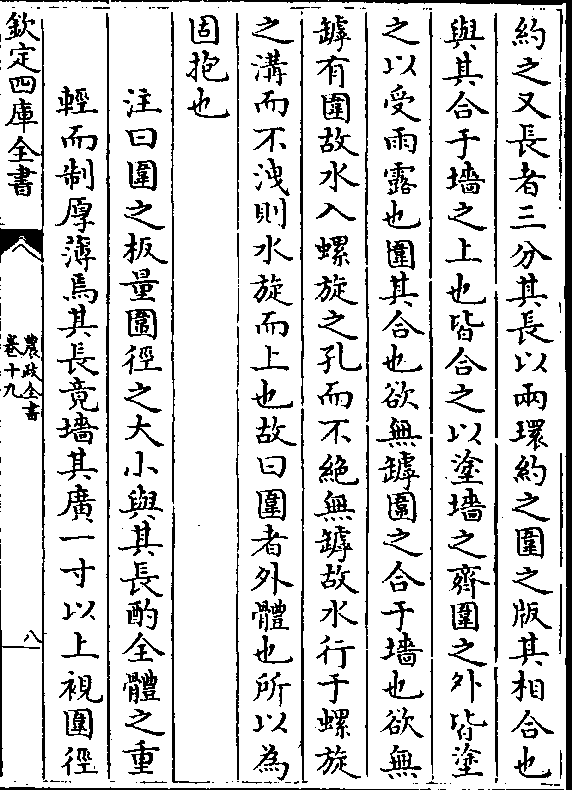 約之又長者三分其長以兩環約之圍之版其相合也
與其合于墻之上也皆合之以塗墻之齊圍之外皆塗
之以受雨露也圍其合也欲無罅圍之合于墻也欲無
罅有圍故水入螺旋之孔而不絶無罅故水行于螺旋
之溝而不洩則水旋而上也故曰圍者外體也所以為
固抱也
注曰圍之板量圍徑之大小與其長酌全體之重
輕而制厚薄焉其長竟墻其廣一寸以上視圍徑
欽定四庫全書
農政全書
卷十九
八